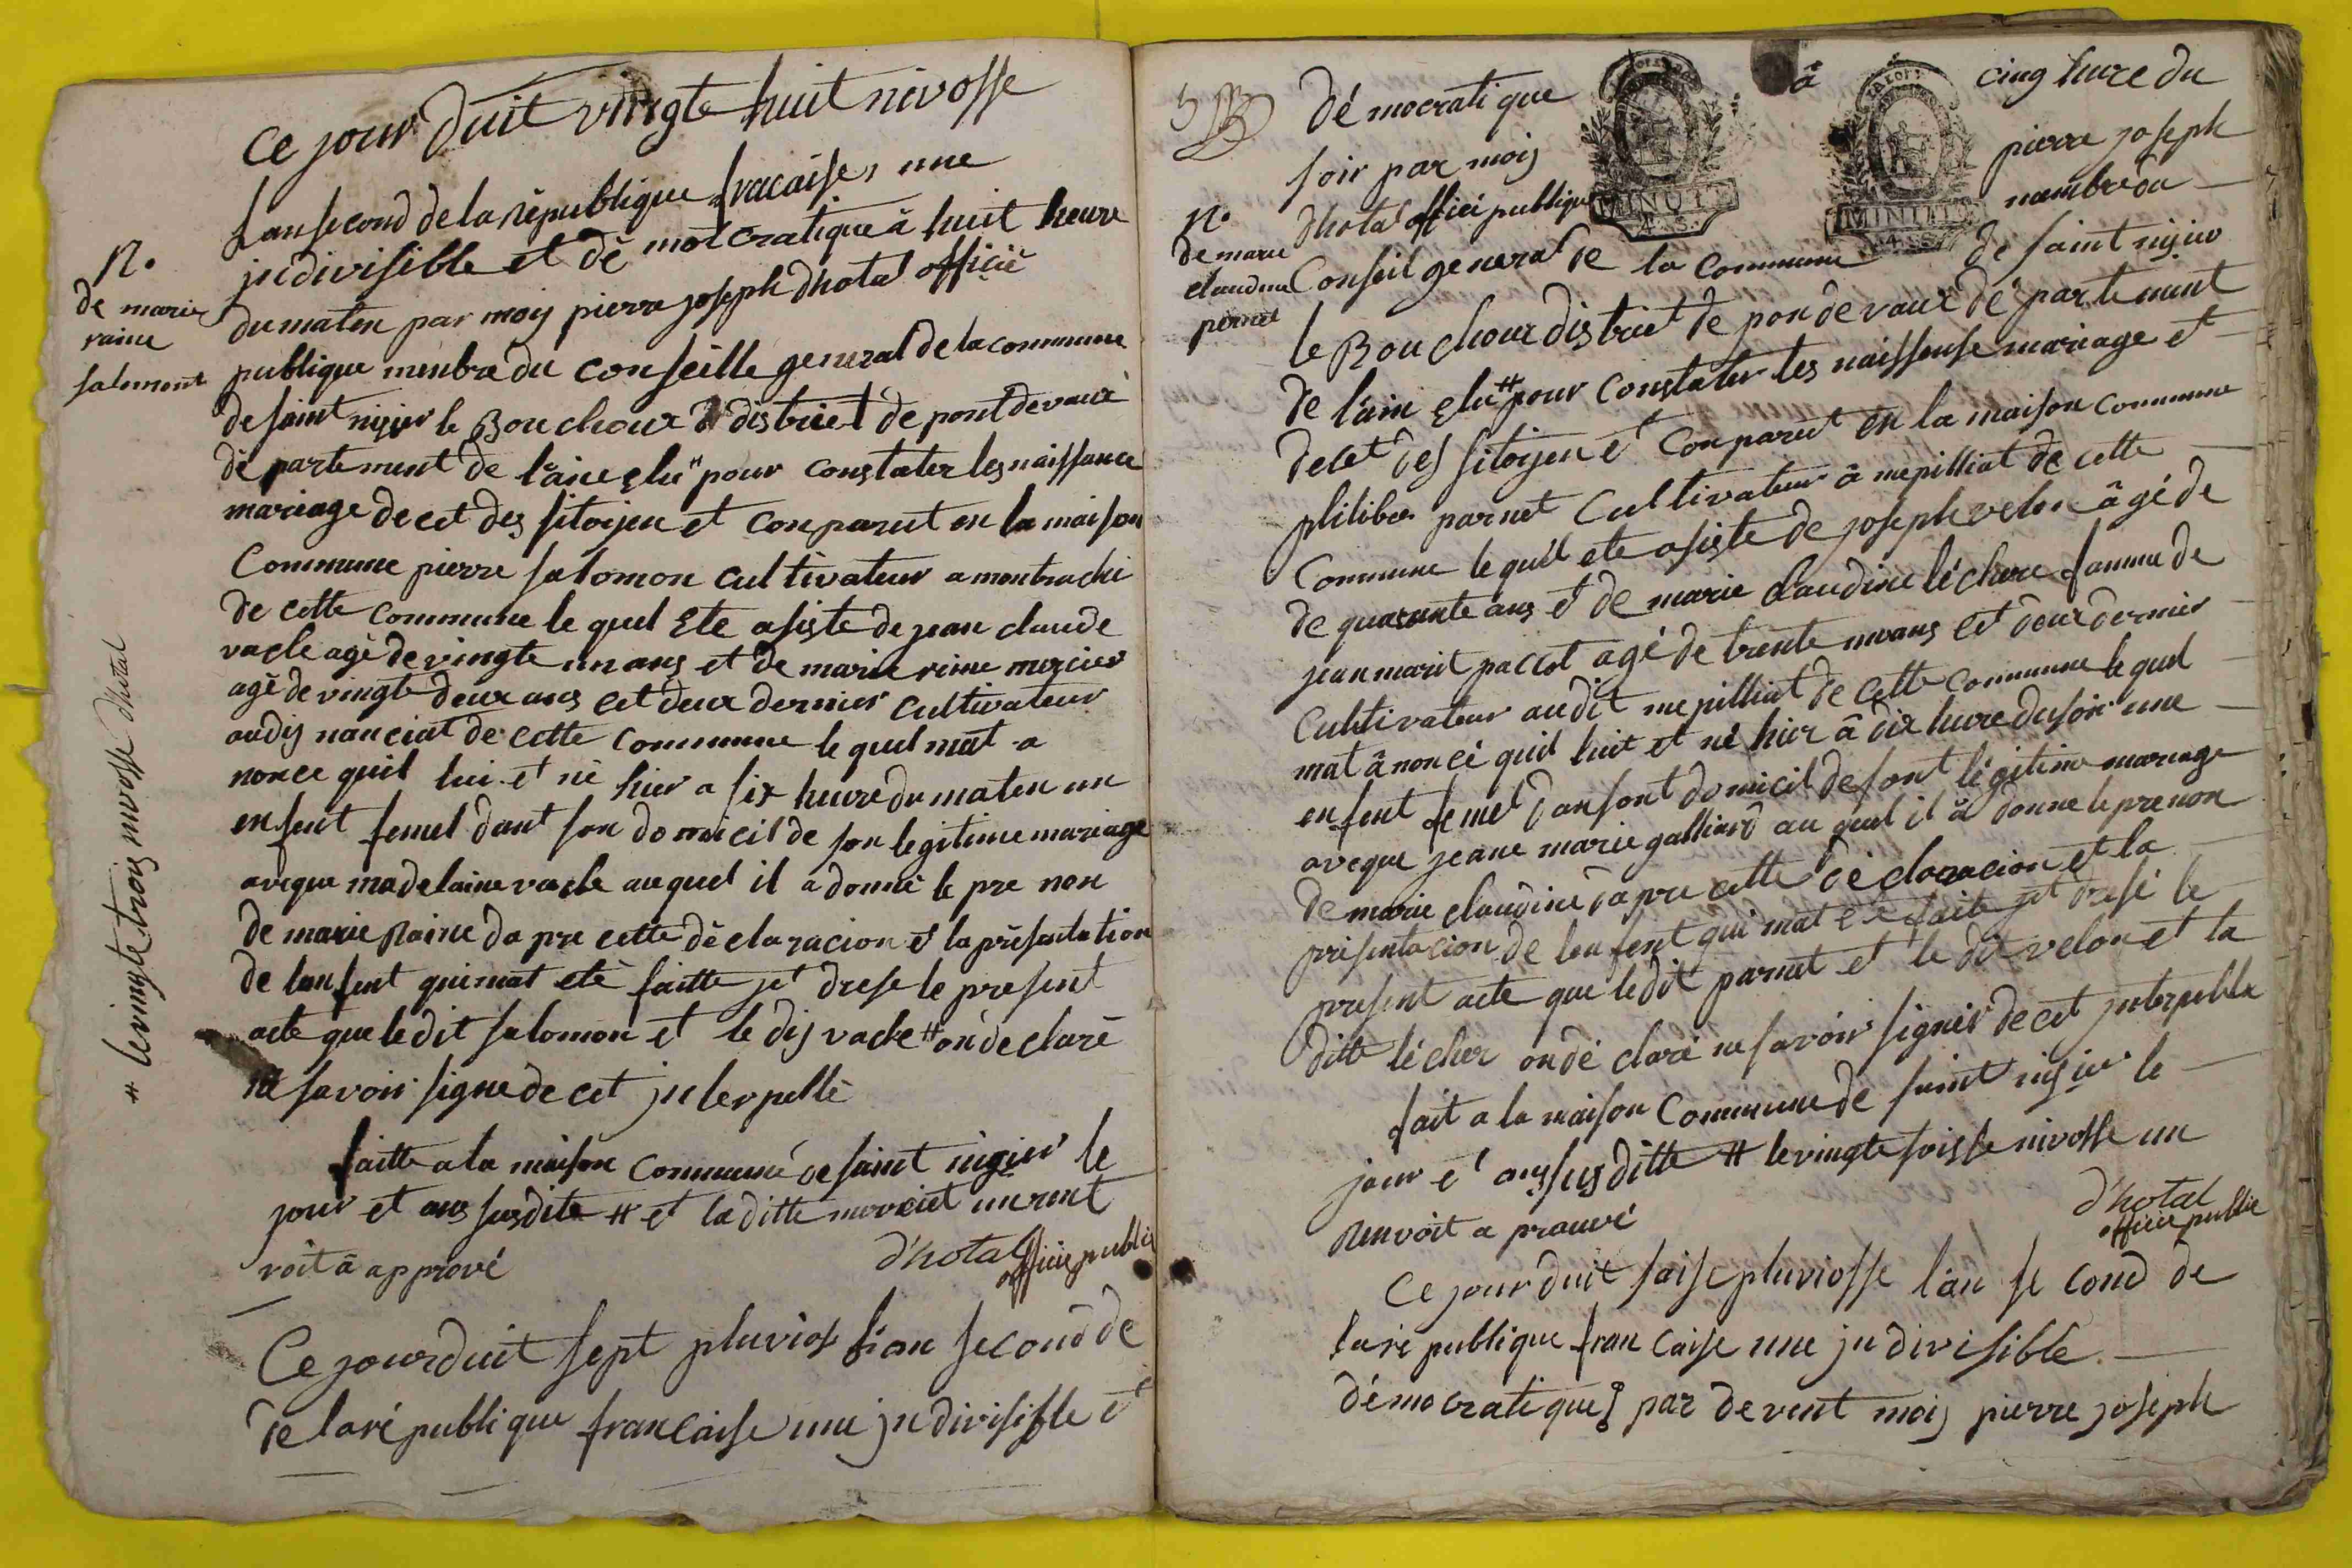 ce jour duit vingte huit nivosse
lan second de la rèpublique fracaise, une
jndivisible et dè motcratique à huit heure
N.
de marie
raine
salomont
du maten par moy pierre joseph dhotal officiè
publique menbre du conseille general de la commune
de saint nizier le Bouchoux district de pont devaux
dè partement de l'ain elu # pour constater les naissance
mariage decet des sitoijen et conparut en la maison
Commune pierre salomon cultivateur a montrachi
de cette commune le quel Ete asiste de jean claude
vacle agè de vingte un ans et de marie rine mercier
agè de vingte deux ans cet deux dernier cultivateur
audis nanciat de cette commune le quel mat a
nonce quil lui et nè hier a six heure du maten un
enfent femel dant son domicil de son legitime mariage
aveque madelaine vacle auquel il a donnè le pre non
de marie Raine da pre cette dèclaracion et la prèsentation
de lenfent quimat etè faitte jet drese le present
acte que le dit salomon et le dis vacle # on declarè
ne savoir signe de cet jnterpellè
faitte a la maison commune de saint nizier le
jour et ans susdite # et la ditte mercier un rent
voit à approvè
d'hotal
officie public
# le vingte trois nivosse dhotal
Ce jourduit sept pluvios lan second de
de la rèpublique francaise une jndivisifle et
5
dé mocratique à cinq heure du
soir par moij pierre joseph
MINUTE
4. S.
MINUTE
4. S.
N.
de marie
claudine
pernet
dhotal officié publique menbre du
Conseil general de la commune de saint nizier
le Bouchoux district de pon de vaux dé partement
de l'ain elu # pour constater les naissense mariage et
decet des sitoijen et conparut en la maison commune
philiber parnet cultivateur à mepilliat de cette
Commune le quil ete asiste de joseph velon âgé de
de quarante ans et de marie claudine lécher famme de
jean marit paccot agé de trente un ans cet deux dernier
cultivateur audit mepilliat de cette commune le quel
mat ânoncé quil luit et né hier â dix heure du soir une
enfent femel dan sont domicil de sont légitime mariage
aveque jeane marie galliard au quel il â donne le prenon
de marie claudine dapre cette déclaracion et la
présentacion de lenfent qui mat été faite jet dresé le
present acte que ledit parnet et le dit velon et la
ditte lécher on dé claré ne savoir signer de cet jnterpelle
fait a la maison Commune de saint nizier le
jour et ans susditte # le vingte soisse nivosse un
renvoit a prauvé
d'hotal
officie public
Ce jour duit saise pluviosse l'an se cond de
la ré publique francaise une jndivisible
démocratique par devent moij pierre joseph